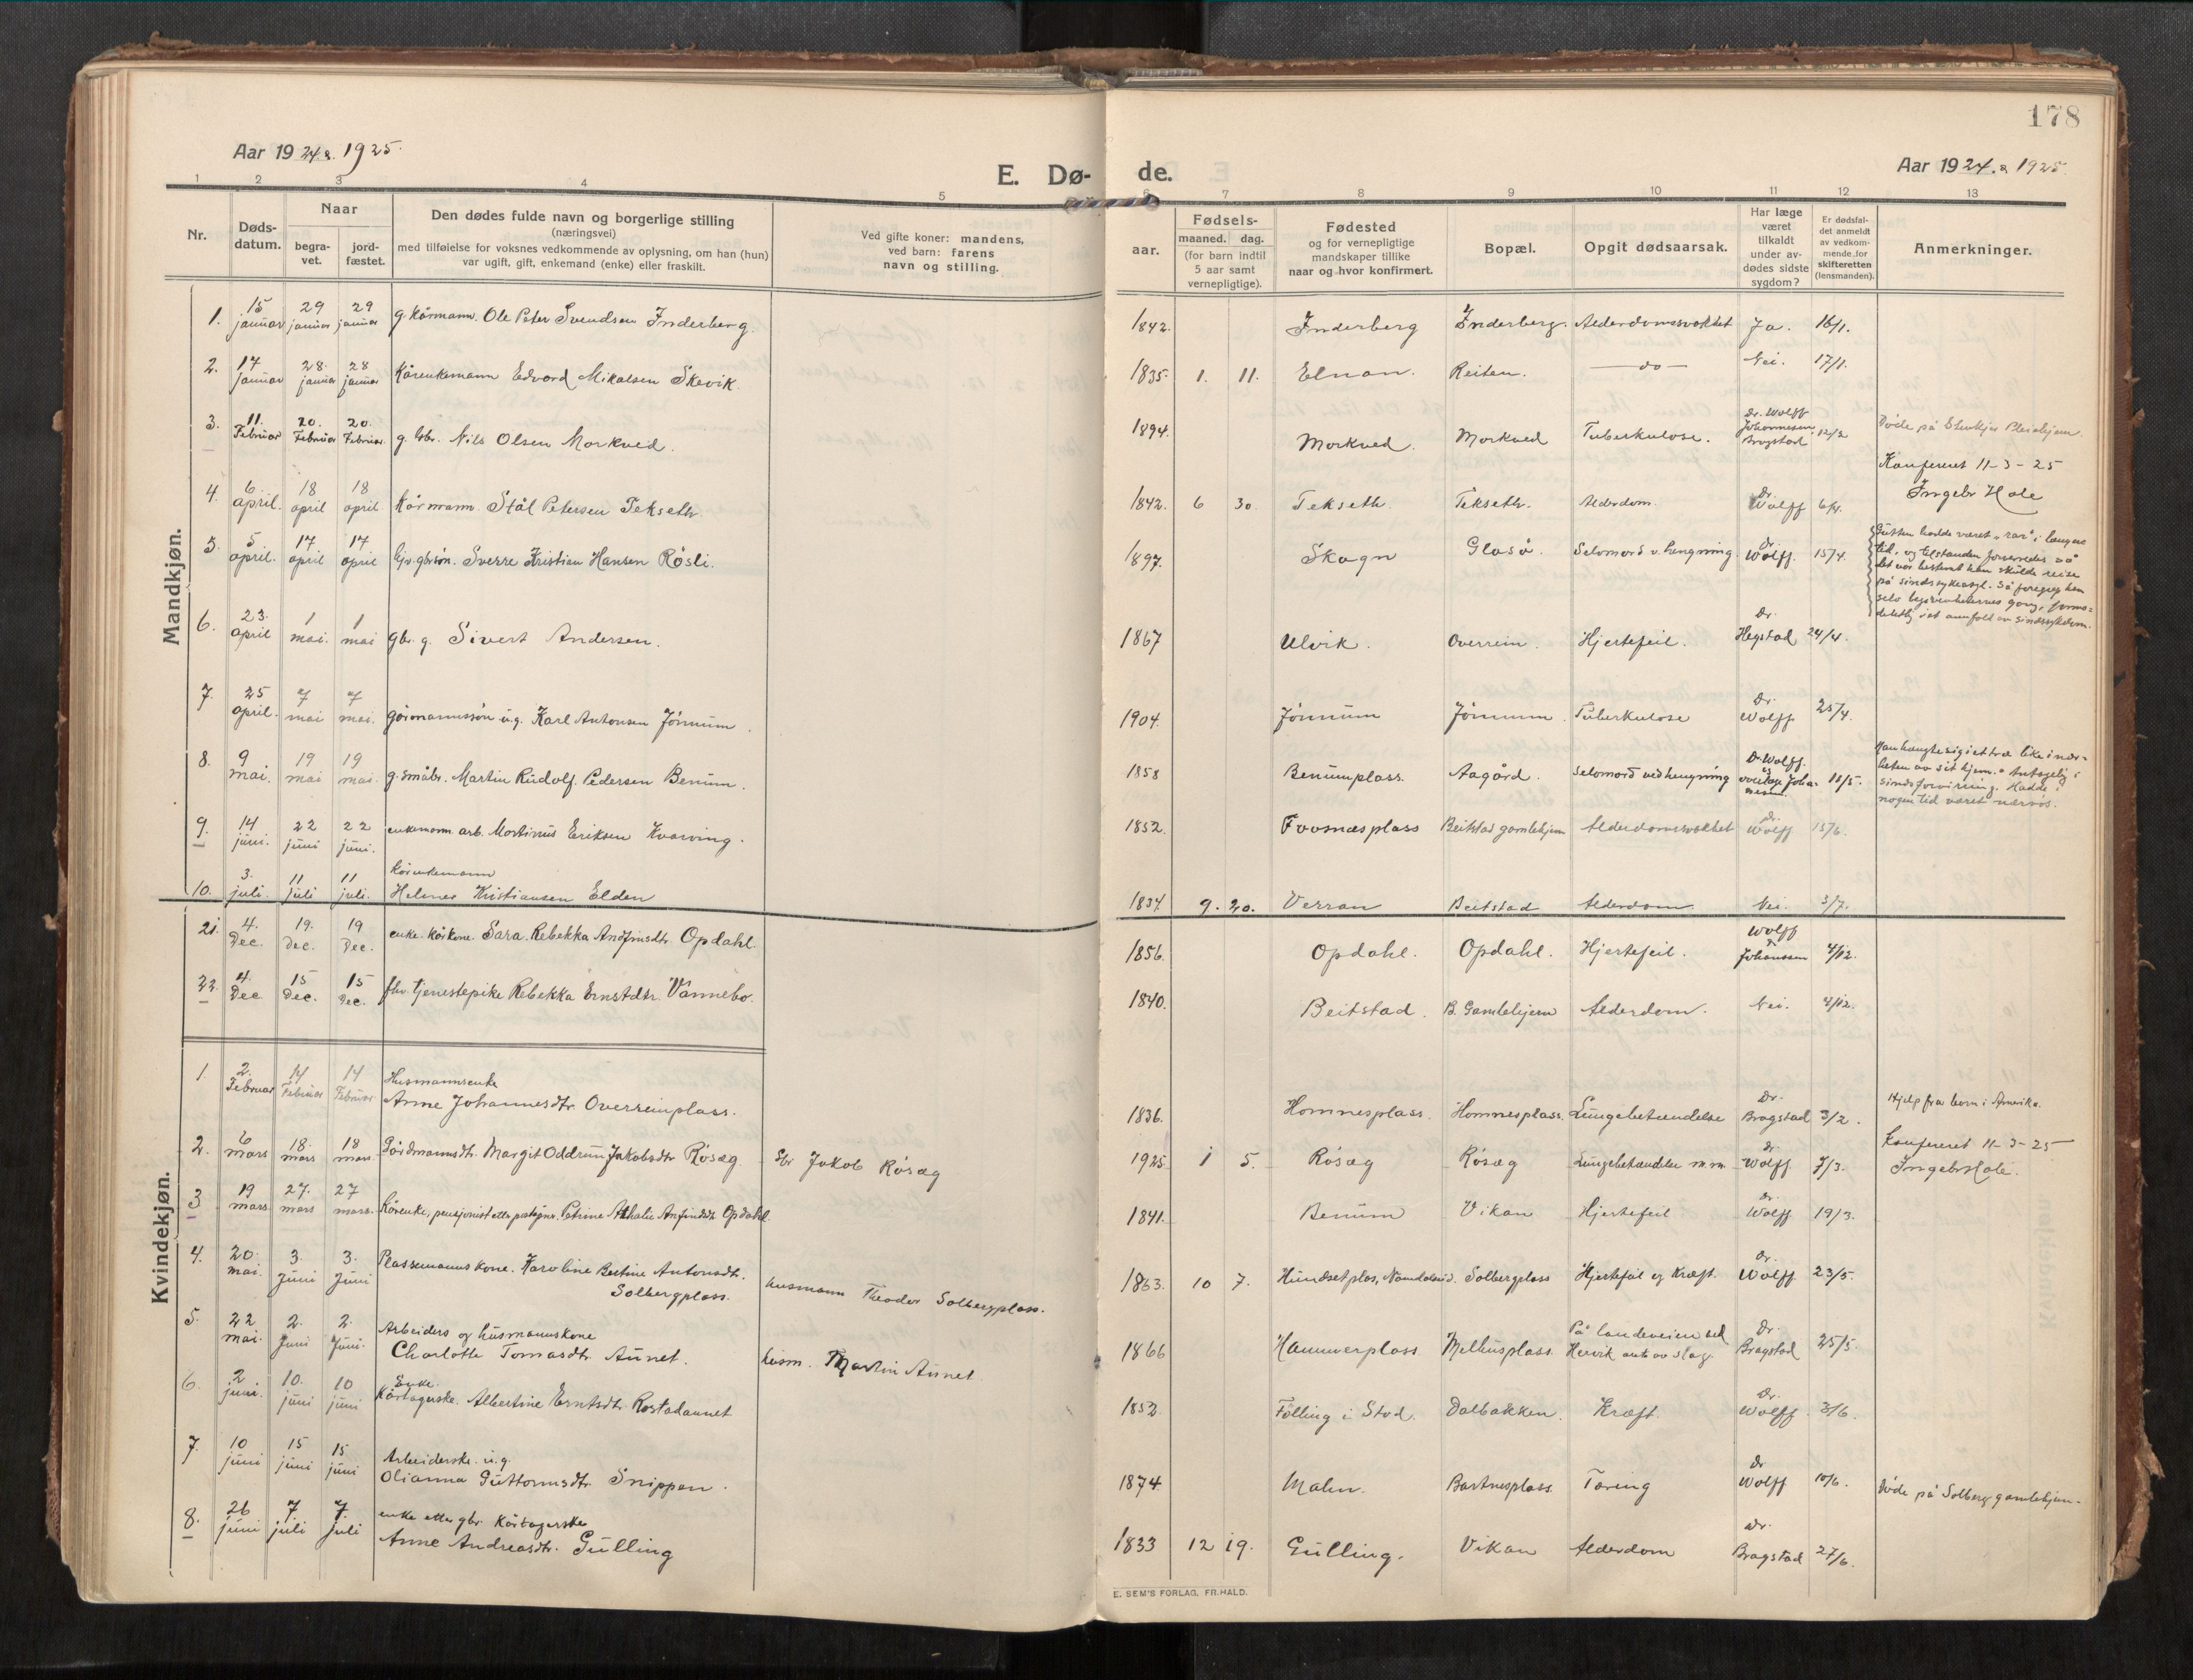 178
Aar 1924 & 1925.
E. Dø-
de.
Aar 1924. & 1925.
1 2 3 4 5 6 7 8 9 10 11 12 13
Nr.
Døds-
datum.
Naar
begra-
vet.
jord-
fæstet.
Den dødes fulde navn og borgerlige stilling
(næringsvei)
med tilføielse for voksnes vedkommende av oplysning, om han (hun)
var ugift, gift, enkemand (enke) eller fraskilt.
Ved gifte koner: mandens,
ved barn: farens
navn og stilling.
Fødsels-
aar. maaned. dag.
(for barn indtil
5 aar samt
vernepligtige).
Fødested
og for vernepligtige
mandskaper tillike
naar og hvor konfirmert.
Bopæl.
Opgit dødsaarsak.
Har læge
været
tilkaldt
under av-
dødes sidste
sygdom?
Er dødsfal-
det anmeldt
av vedkom-
mende for
skifteretten
(lensmanden).
Anmerkninger.
Mandkjøn.
1. 15 januar 29 januar 29 januar g. kårmann. Ole Peter Svendsen Inderberg. 1842. Inderberg Inderberg. Alderdomssvakhet Ja. 16/1.
2. 17 januar 28. januar 28 januar Kårenkemann Edvard Mikalsen Skevik. 1835. 1. 11. Elnan. Reiten. — do — Nei. 17/1.
3. 11. Februar 20. Februar 20. Februar g. gbr. Nils Olsen Morkved. 1894. Morkved. Morkved Tuberkulose. Dr. Wolff Johannesen Bragstad 12/2 Døde på Stenkjer Pleiehjem.
Konfereret 11-3-25
Ingebr Hole
4. 6. april. 18 april 18 april Kårmann. Stål Petersen Tekseth. 1842. 6 30. Tekseth. Tekseth. Alderdom. Dr. Wolff 6/4.
5. 5 april. 17 april 17 april Sverre Kristian Hansen Røsli. 1897. Skogn Glaså. Selvmord v. hengning. Dr. Wolff. 15/4.
Gutten hadde været "rar" i længere
tid, og tilstanden forverredes så
det var bestemt han skulde reise
på sindssykeasyl. Så foregreg han
selv begivenhetenes gang, formo-
dentlig i et anfald av sindssykdom.
6. 23. april 1 mai. 1 mai gbr. g. Sivert Andersen. 1867 Ulvik. Overrein. Hjertefeil. Dr. Hegstad 24/4.
7. 25 april. 7 mai 7 mai. gårmannssøn u.g. Karl Antonsen Jónnum. 1904. Jónnum Jónnum. Tuberkulose Dr. Wolff. 25/4.
8. 9 mai. 19 mai 19 mai. g. småbr. Martin Rudolf Pedersen Benum. 1858 Benumplass. Aagård. Selvmord ved hengning Dr. Wolff. og 11/5.
Han hængte sig i et træ like i nær-
heten av sit hjem. Antagelig i
sindsforvirring. Hadde i
nogen tid været nervøs.
9. 14 juni. 22 juni 22 juni. enkemann arb. Martinus Eriksen Kvarving. 1852. Fosnæsplass Beitstad gamlehjem Alderdomssvakhet Dr. Wolff 15/6.
10. 3. juli. 11 juli 11 juli. Kårenkemann
Helmer Kristiansen Elden 1834. 9. 20. Verran Beitstad Alderdom Nei. 3/7.
21. 4. Dec. 19. Dec. 19 Dec. enke. kårkone. Sara Rebekka Andfinsdtr. Opdahl. 1856. Opdahl. Opdahl. Hjertefeil. Wolff & Johansen 4/12.
22. 4. Dec 15 Dec. 15 Dec. fhv. tjenestepike Rebekka Ernstdtr. Vannebo. 1840. Beitstad. B. Gamlehjem Alderdom. Nei. 4/12.
Kvindekjøn.
1. 2. Februar 14 Februar 14 Februar Husmannsenke
Anne Johannesdtr Overreinplass. 1836. Homnesplass. Homnesplass. Lungebetændelse Dr. Bragstad 3/2. Hjelp fra børn i Amerika.
Konfereret 11-3-25
Ingebr Hole.
2. 6 mars 18. mars 18 mars. Gårdmannsdtr. Margit Oddrun Jakobsdtr Røsæg. Gbr Jakob Røsæg 1925. 1 5. Røsæg Røsæg Lungebetændelse m.m. Dr. Wolff. 7/3.
3 19 mars 27. mars 27 mars. Kårenke, pensjonist Petrine Athalie Anfinds. Opdahl. 1841. Benum Vikan Hjertefeil Dr. Wolff 19/3.
4. 20. mai. 3. Juni 3. Juni Plassemanns kone. Karoline Bertine Antonsdtr.
Solbergplass. husmann Theodor Solbergplass. 1863. 10 7. Hundsetplas, Namdalseid. Solbergplass Hjertefeil og Kræft. Dr. Wolff. 23/5.
5. 22 mai. 2. Juni 2. Juni. Arbeiders og husmannskone
Charlotte Tomasdtr. Aunet. husm. Martin Aunet. 1866 Hammerplass Melhusplass. På landeveien ved
Hervik ant. av slag. Dr. Bragstad 25/5.
6. 2 juni. 10. juni 10 juni Enke.
Kårtagerske. Albertine Erntsdtr. Rostadaunet 1852. Følling i Stod. Dalbakken. Kræft. Dr. Wolff. 3/6.
7. 10 juni 15 juni 15 juni Arbeiderske. u.g.
Olianna Guttormsdtr. Snippen. 1874. Malm. Bartnesplass. Tæring Dr Wolff 10/6. Døde på Solberg gamlehjem.
8. 26 juni 7 juli 7. juli enke etter gbr. Kårtagerske
Anne Andreasdtr. Gulling 1833 12 19. Gulling. Vikan Alderdom Dr. Bragstad 27/6.
E. SEM'S FORLAG, FR.HALD.